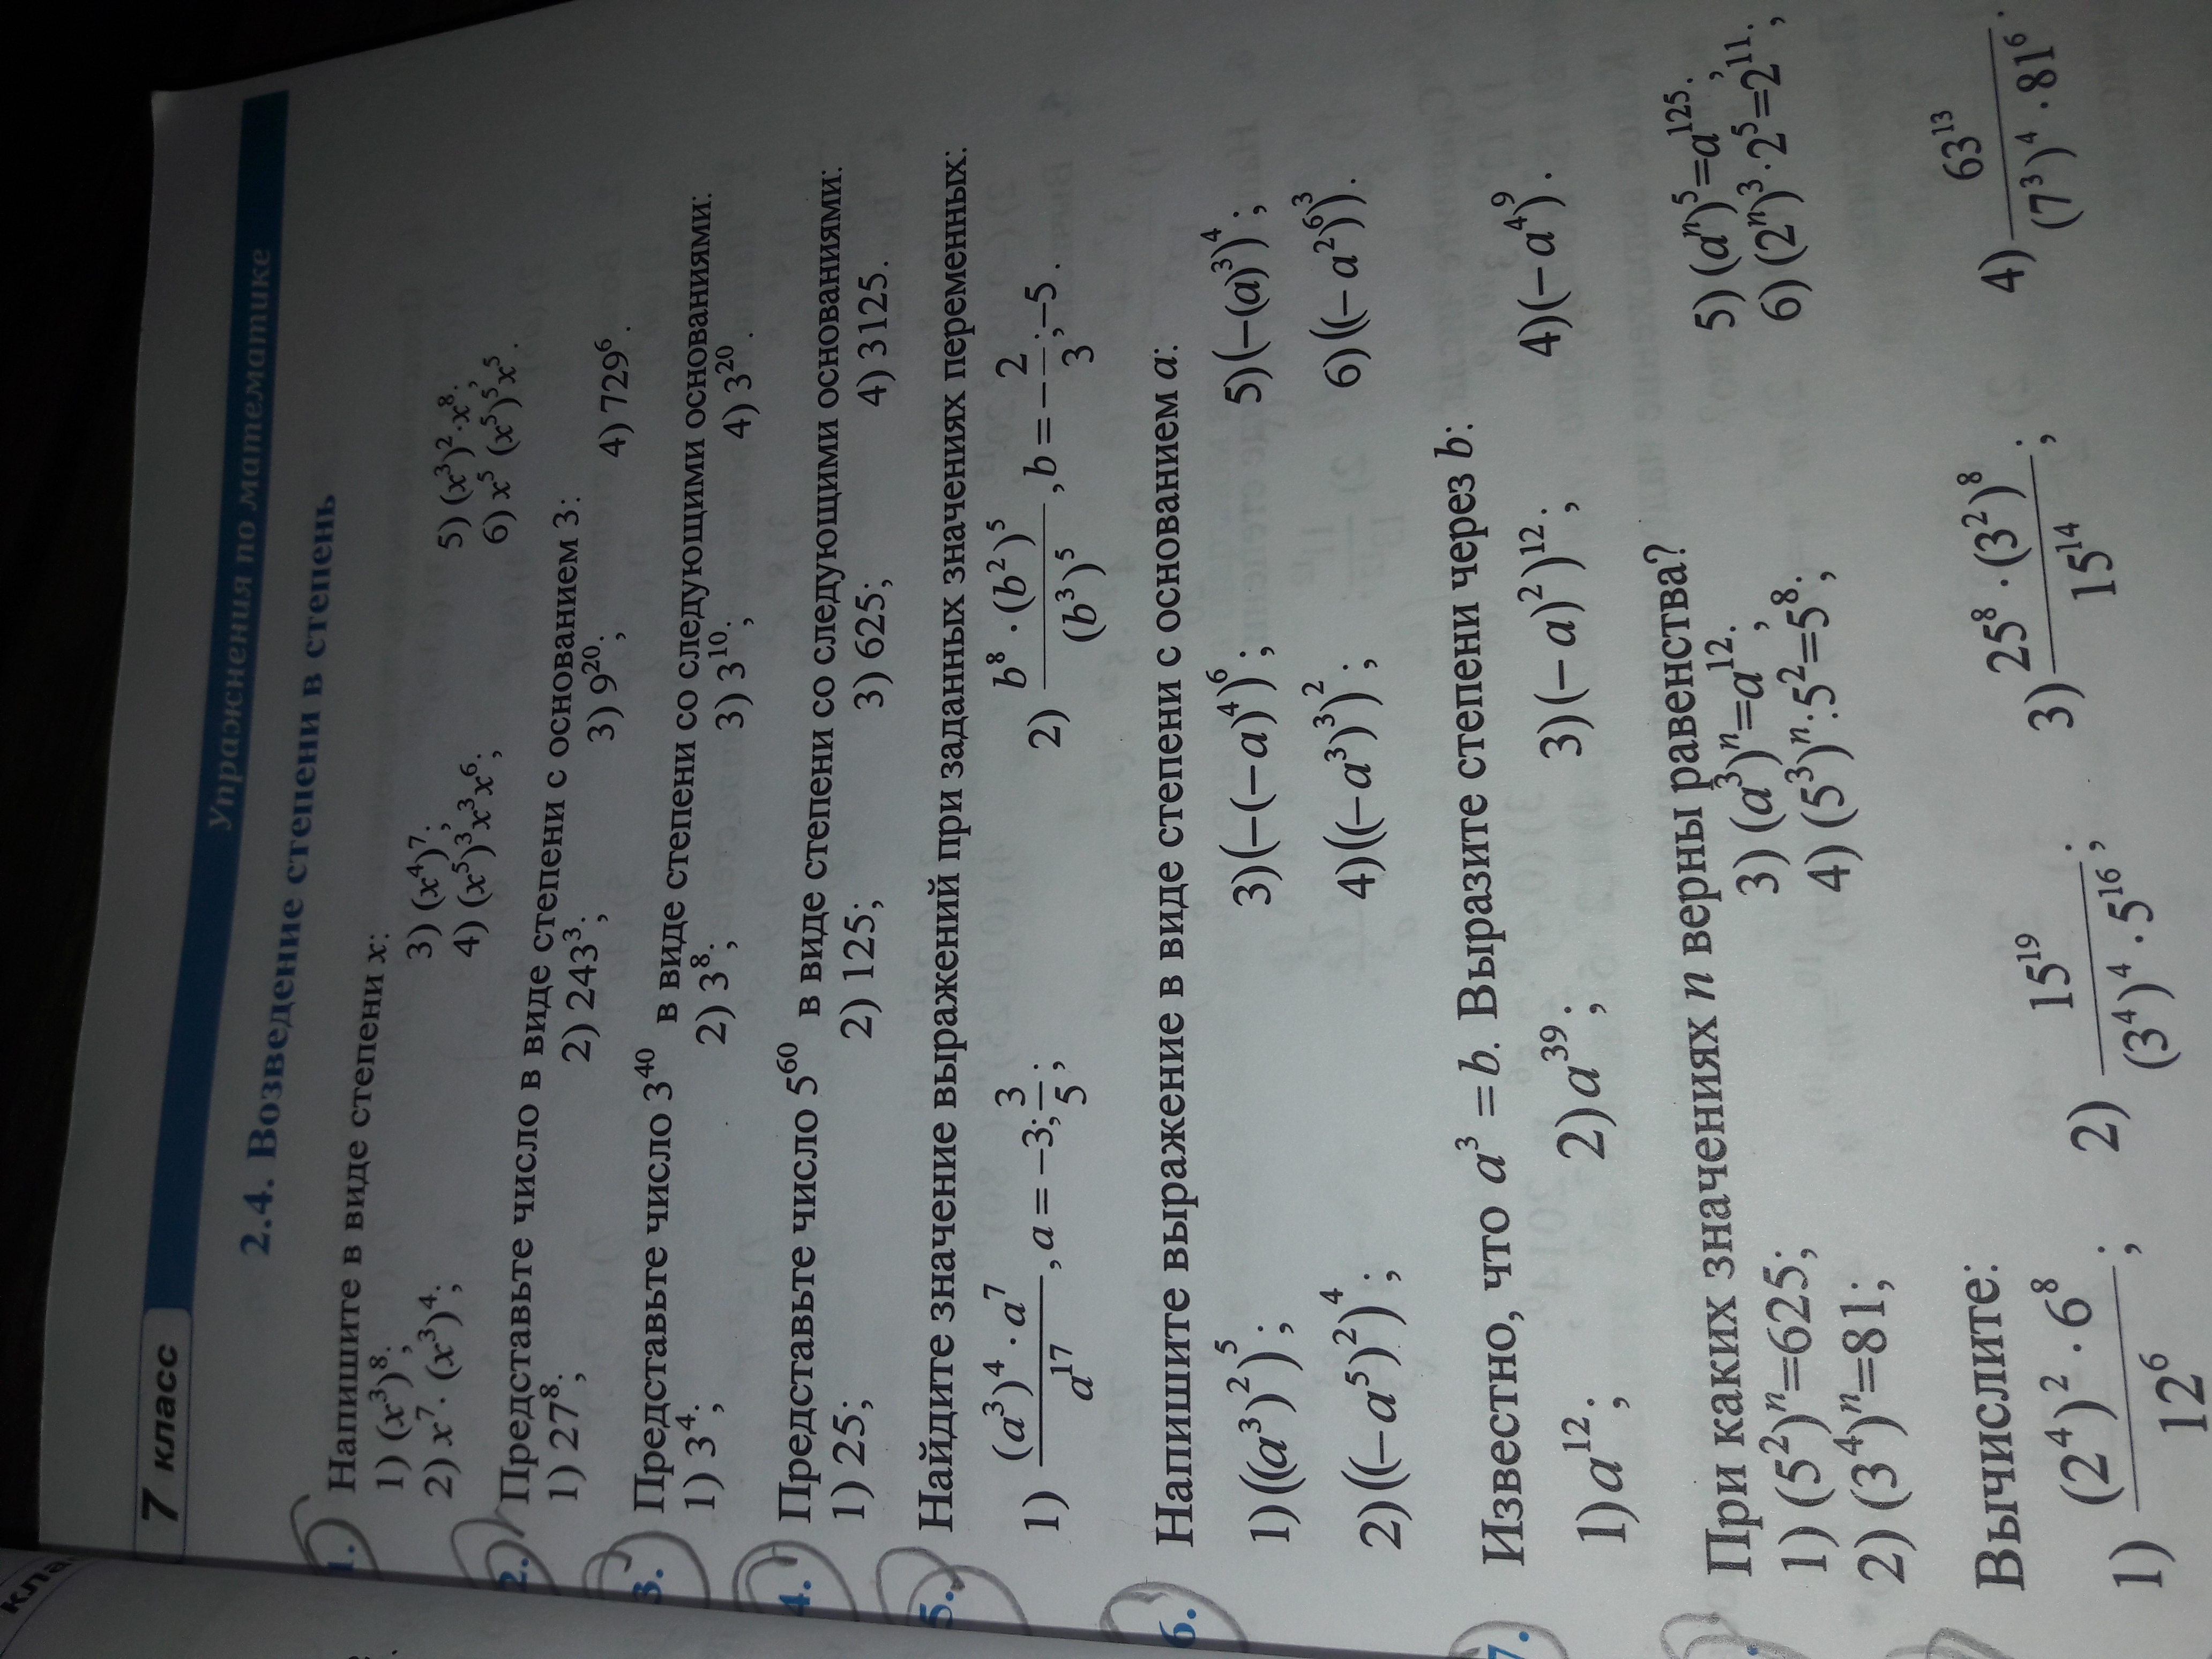 кла
7 класс
Упражнения по математике
2.4. Возведение степени в степень
1. Напишите в виде степени x:
1) (x³)⁸; 3) (x⁴)⁷; 5) (x³)²·x⁸;
2) x⁷·(x³)⁴; 4) (x⁵)³x³x⁶; 6) x⁵(x⁵)⁵x⁵.
2. Представьте число в виде степени с основанием 3:
1) 27⁸; 2) 243³; 3) 9²⁰; 4) 729⁶.
3. Представьте число 3⁴⁰ в виде степени со следующими основаниями:
1) 3⁴; 2) 3⁸; 3) 3¹⁰; 4) 3²⁰.
4. Представьте число 5⁶⁰ в виде степени со следующими основаниями:
1) 25; 2) 125; 3) 625; 4) 3125.
5. Найдите значение выражений при заданных значениях переменных:
1) (a³)⁴·a⁷/a¹⁷, a = −3; 3/5; 2) b⁸·(b²)⁵/(b³)⁵, b = −2/3; −5.
6. Напишите выражение в виде степени с основанием a:
1)((a³)²)⁵; 3)(−(−a)⁴)⁶; 5)(−(a)³)⁴;
2)((−a⁵)²)⁴; 4)((−a³)³)²; 6)((−a²)⁶)³.
7. Известно, что a³ = b. Выразите степени через b:
1)a¹²; 2)a³⁹; 3)(−a)²)¹²; 4)(−a⁴)⁹.
При каких значениях n верны равенства?
1) (5²)ⁿ=625; 3) (a³)ⁿ=a¹²; 5) (aⁿ)⁵=a¹²⁵;
2) (3⁴)ⁿ=81; 4) (5³)ⁿ:5²=5⁸; 6) (2ⁿ)³·2⁵=2¹¹;
Вычислите:
1) (2⁴)²·6⁸/12⁶; 2) 15¹⁹/(3⁴)⁴·5¹⁶; 3) 25⁸·(3²)⁸/15¹⁴; 4) 63¹³/(7³)⁴·81⁶.